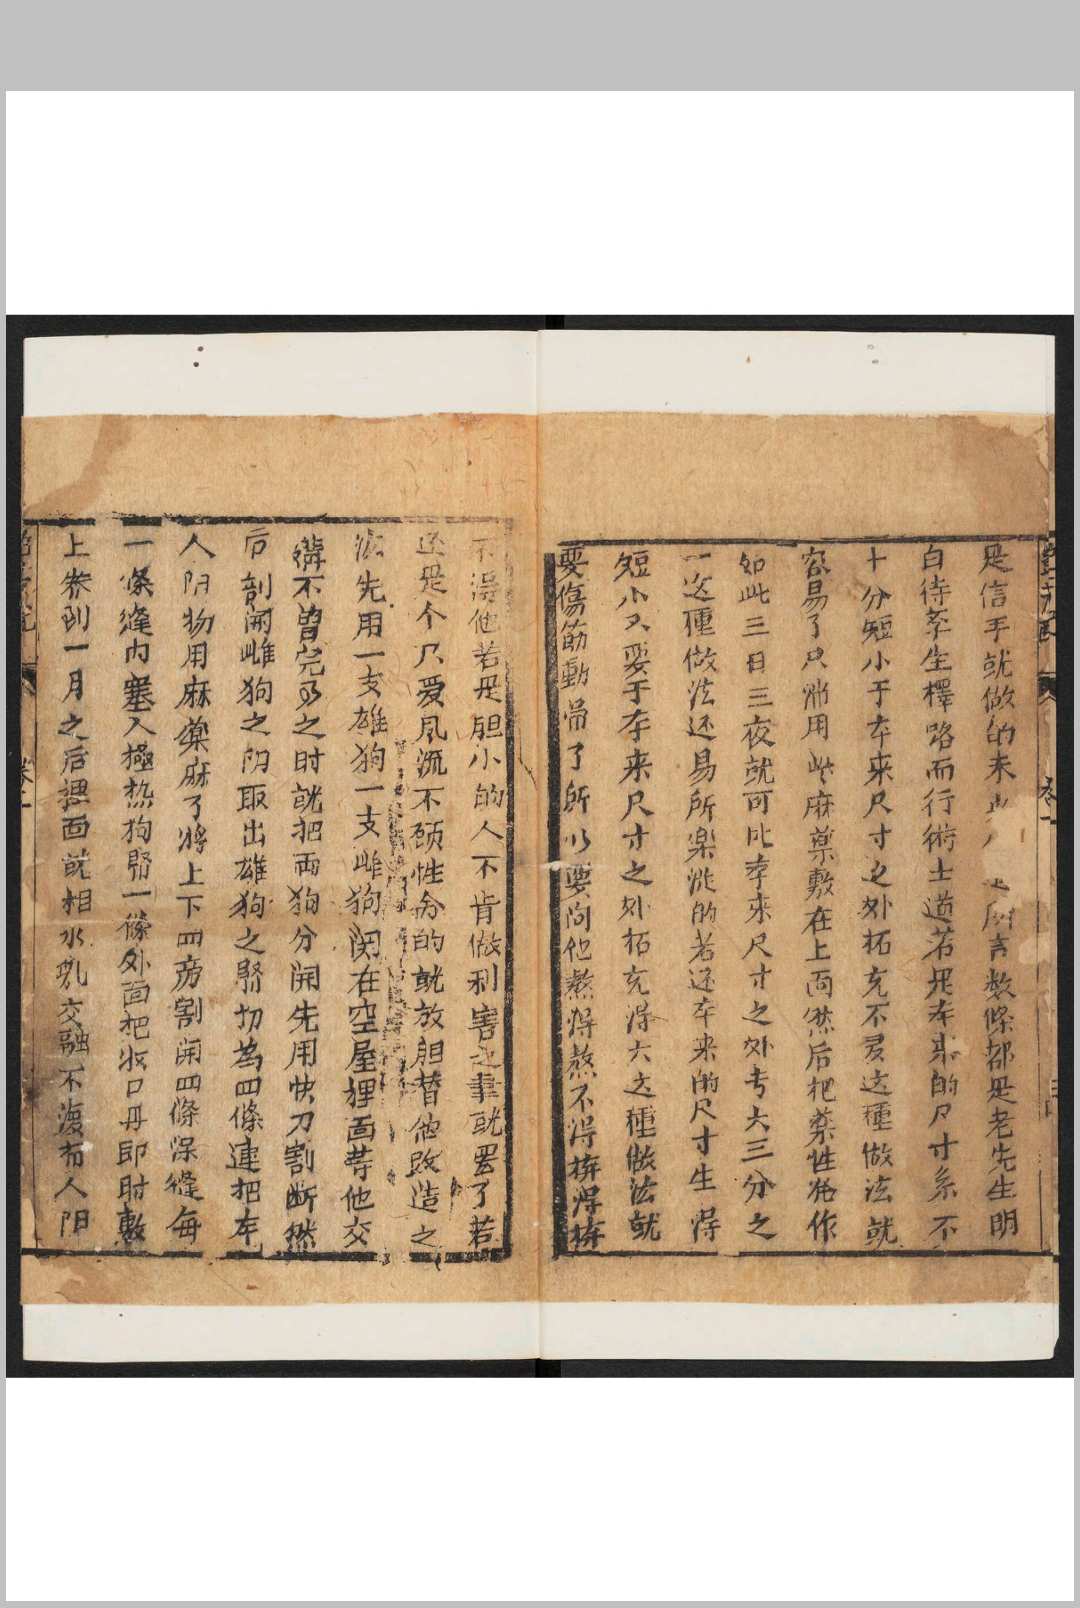 是信手就做的未 言數條都是老先生明
白待李生擇路而行術士道若是本來的尺寸系不
十分短小于本來尺寸之外拓充不多这種做法就
容易了只消用些麻藥敷在上面然后把藥性发作
如此三日三夜就可比本来尺寸之外长大三分之
一这種做法还易所楽從的若还本来的尺寸生得
短小又要于本来尺寸之外拓充得大这種做法就
要傷筋動骨了所以要问他熬得熬不得拚得拚
不得他若是胆小的人不肯做利害之事就罢了若
还是个只爱風流不顾性命的就放胆替他改造之
法先用一支雄狗一支雌狗関在空屋裡面等他交
搆不曽完事之时就把両狗分開先用快刀割断然
后剖開雌狗之阴取出雄狗之腎切為四條連把本
人阴物用麻藥麻了将上下四旁割開四條深縫每
一條縫内塞入極热狗腎一條外面把收口丹即时敷
上养到一月之后裡面就相水乳交融不復有人阴